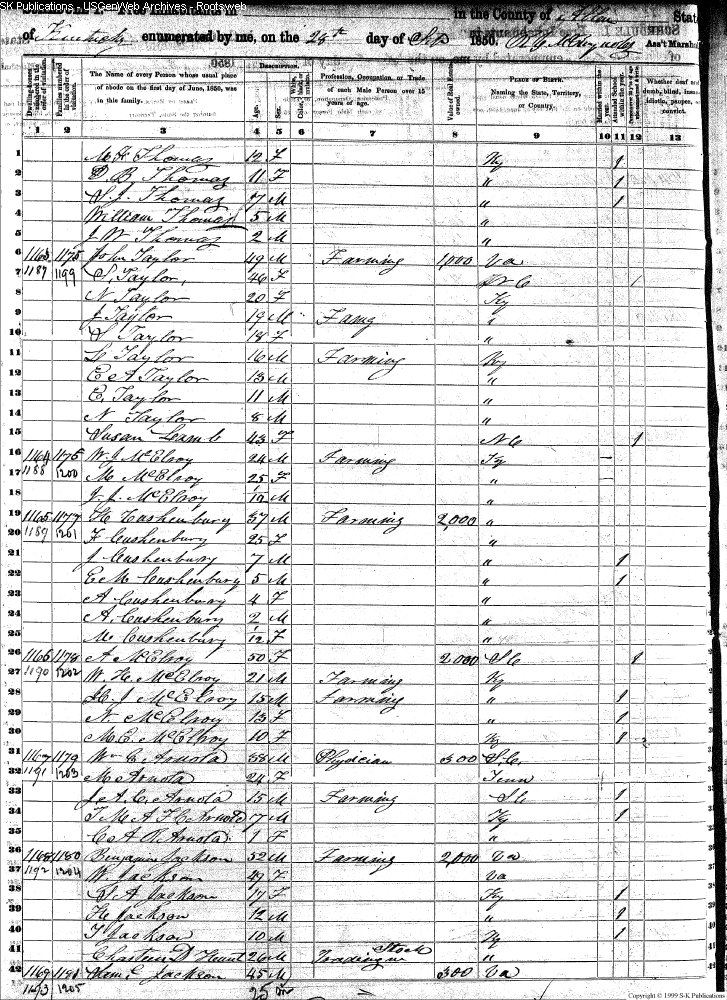 SK Publications - USGenWeb Archives - Rootsweb
in the County of Allen State
of Kentucky enumerated by me, on the 28th day of Sep 1850. Ass't Marshal
DESCRIPTION.
The Name of every Person whose usual place of abode on the first day of June, 1850, was in this family.
Age.
Sex.
Profession, Occupation, or Trade of each Male Person over 15 years of age.
Value of Real Estate owned.
PLACE OF BIRTH. Naming the State, Territory, or Country.
Married within the year.
Attended School within the year.
Whether deaf and dumb, blind, insane, idiotic, pauper, or convict.
1 2 3 4 5 6 7 8 9 10 11 12 13
1 M F Thomas 12 F Ky 1
2 D B Thomas 11 F " 1
3 S. J. Thomas 7 M " 1
4 William Thomas 5 M "
5 J W Thomas 2 M "
6 1163 1175 John Taylor 49 M Farming 1,000 Va
7 1187 1199 S, Taylor, 46 F N C /
8 N Taylor 20 F Ky
9 J Taylor 19 M Famg "
10 S Taylor 18 F "
11 L Taylor 16 M Farming Ky
12 E A Taylor 13 M "
13 E. Taylor 11 M "
14 N Taylor 8 M "
15 Susan Leamb 43 F N C 1
16 1164 1175 W. J. McElroy 24 M Farming Ky
17 1188 1200 M McElroy 25 F "
18 J. J. McElroy M "
19 1165 1177 H Cushenbury 37 M Farming 2,000 "
20 1189 1201 F Cushenbury 25 F "
21 J Cushenbury 7 M " 1
22 E M Cushenbury 5 M " 1
23 A Cushenbury 4 F "
24 A. Cushenbury 2 M "
25 M Cushenbury F "
26 1166 1178 A McElroy 50 F 2,000 S C 1
27 1190 1202 W. H. McElroy 21 M Farming Ky
28 H J McElroy 15 M Farming " 1
29 N. McElroy 13 F " 1
30 M. E. McElroy 10 F Ky 1
31 1167 1179 Wm C Arnold 38 M Physician 300 S. C.
32 1191 1203 M Arnold 24 F Tenn
33 J. A. C. Arnold 15 M Farming S C 1
34 T M A F C Arnold 7 M Ky 1
35 C A R Arnold 1 F "
36 1168 1180 Benjamin Jackson 52 M Farming 2,000 Va
37 1192 1204 W. Jackson 49 F Va
38 S. A Jackson 17 F Ky 1
39 H Jackson 12 M " 1
40 T Jackson 10 M Ky 1
41 Hunt 26 M Trading in Stock "
42 1169 1181 Jackson 45 M 300 Va
1193 1205
Copyright © 1999 S-K Publications